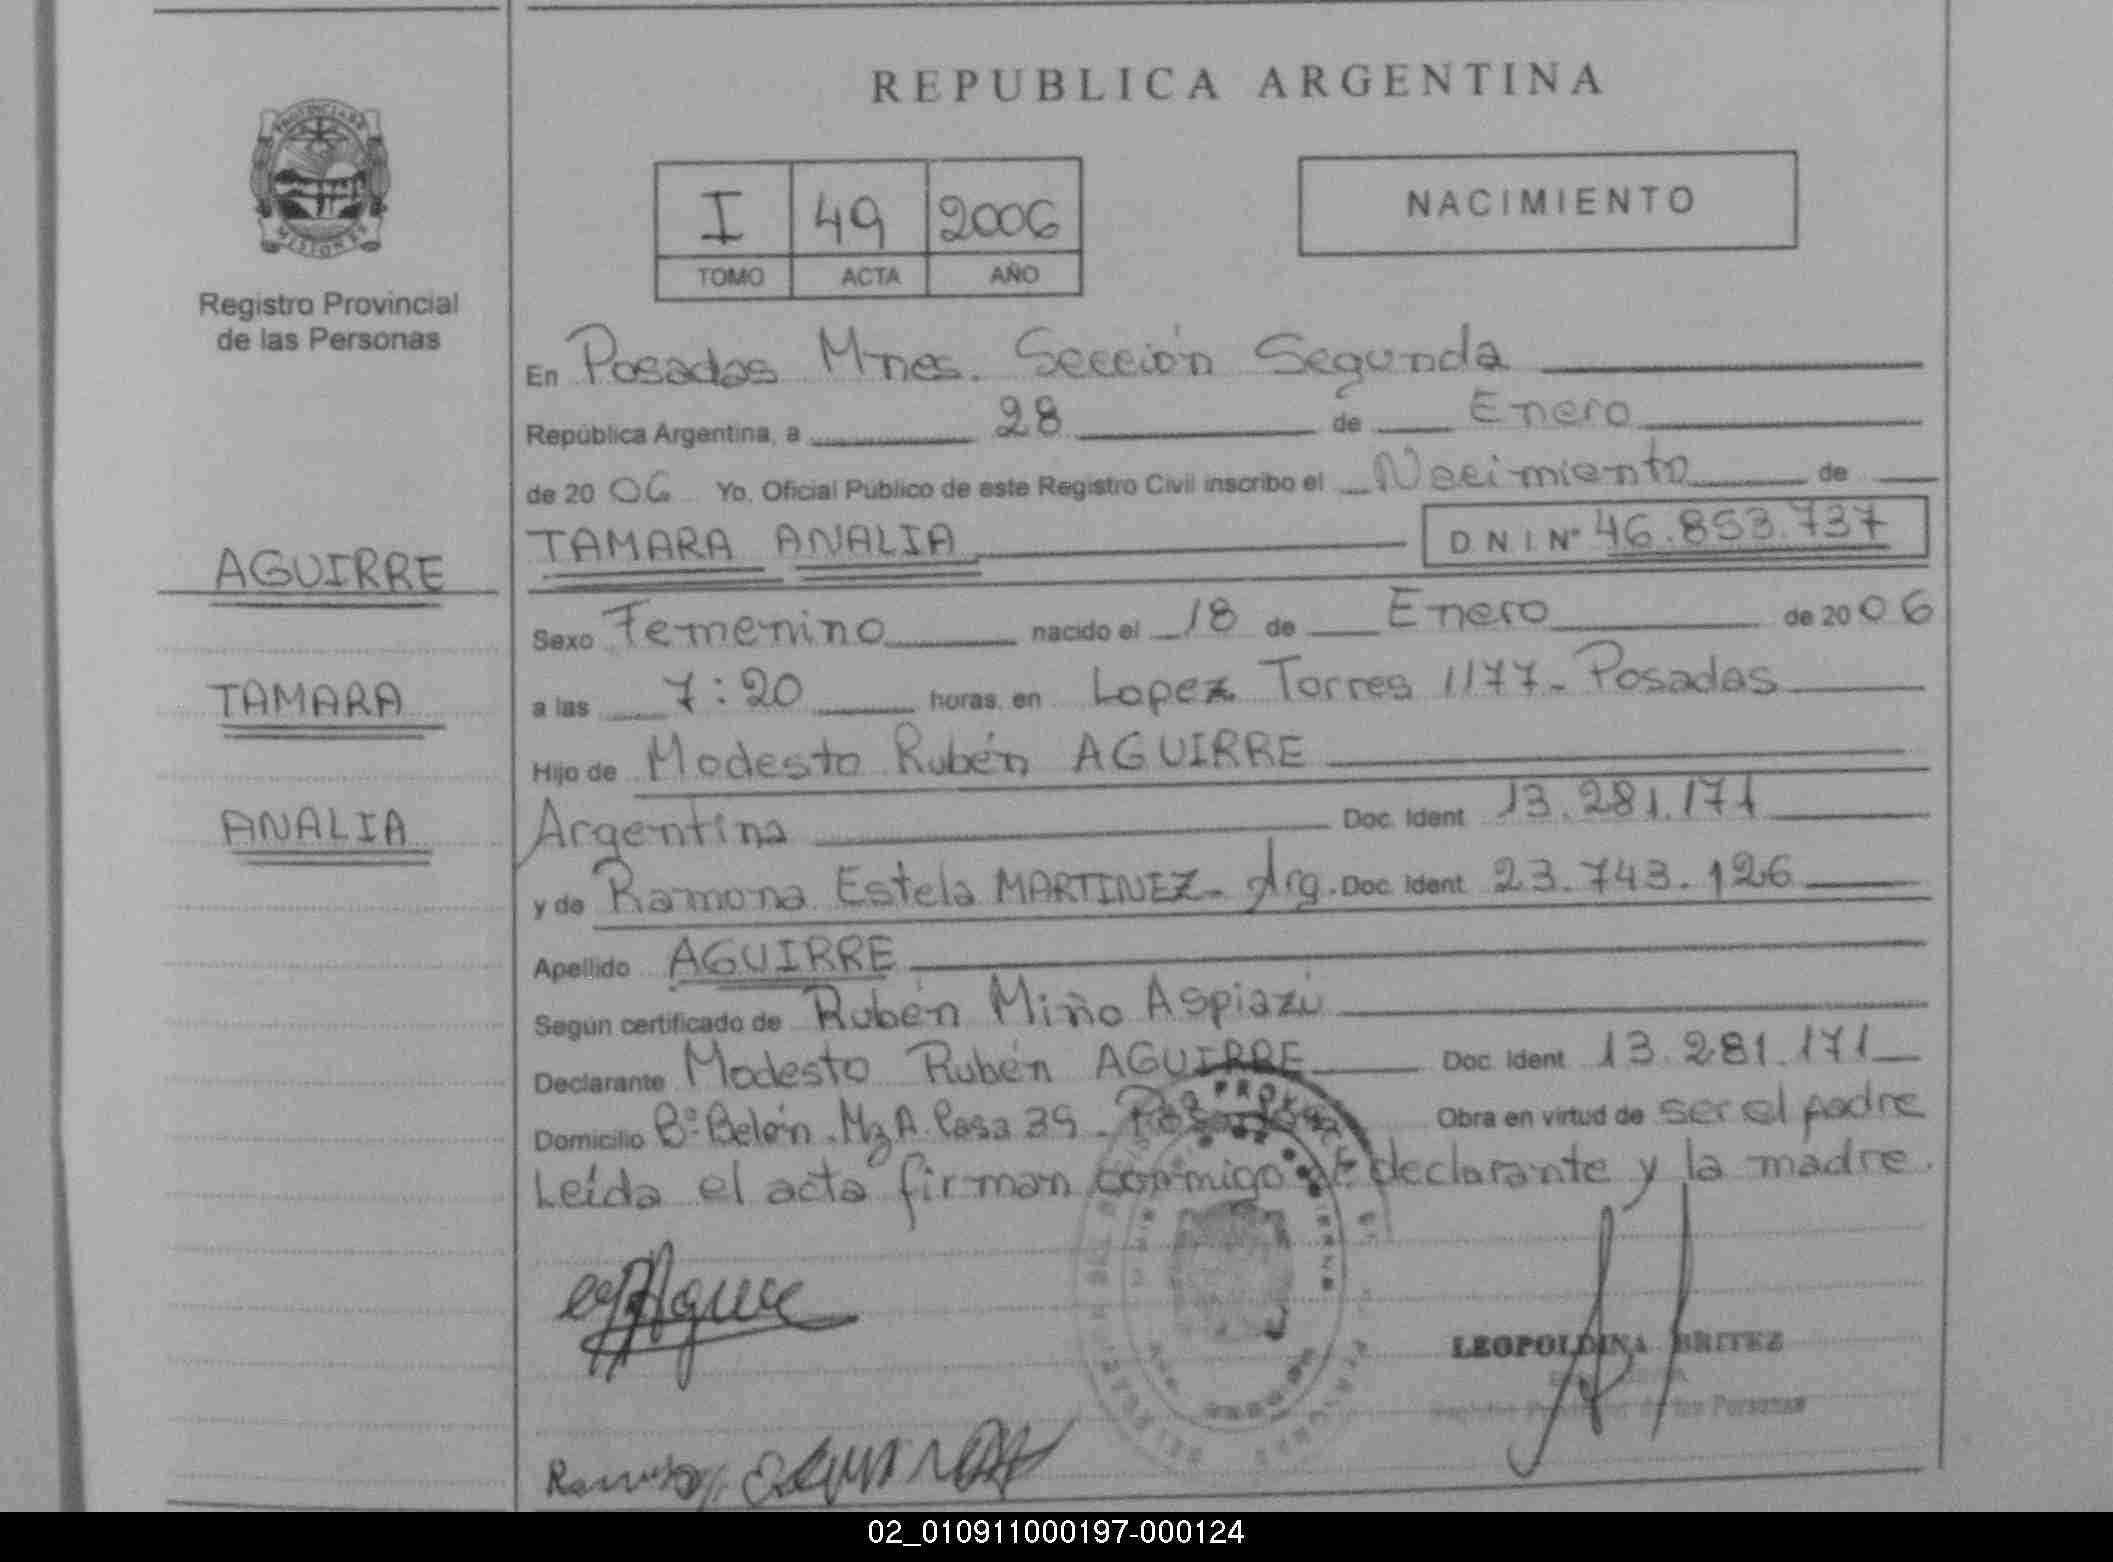 REPUBLICA ARGENTINA
PROVINCIA DE
MISIONES
Registro Provincial
de las Personas
I 49 2006
TOMO ACTA AÑO
NACIMIENTO
En Posadas Mnes. Sección Segunda
República Argentina, a 28 de Enero
de 2006 Yo, Oficial Público de este Registro Civil inscribo el Nacimiento de
TAMARA ANALIA D.N.I. Nº 46.853.737
AGUIRRE
TAMARA
ANALIA
Sexo Femenino nacido el 18 de Enero de 2006
a las 7:20 horas, en Lopez Torres 1177- Posadas
Hijo de Modesto Rubén AGUIRRE
Argentina Doc. Ident 13.281.171
y de Ramona Estela MARTINEZ- Arg. Doc. Ident 23.743.126
Apellido AGUIRRE
Según certificado de Rubén Miño Aspiazú
Declarante Modesto Rubén AGUIRRE Doc. Ident 13.281.171
Domicilio Bº Belén. Mz A. Casa 39- Posadas Obra en virtud de ser el padre
Leída el acta firman conmigo el declarante y la madre.
LEOPOLDINA BRITEZ
Registro Provincial de las Personas
02_010911000197-000124